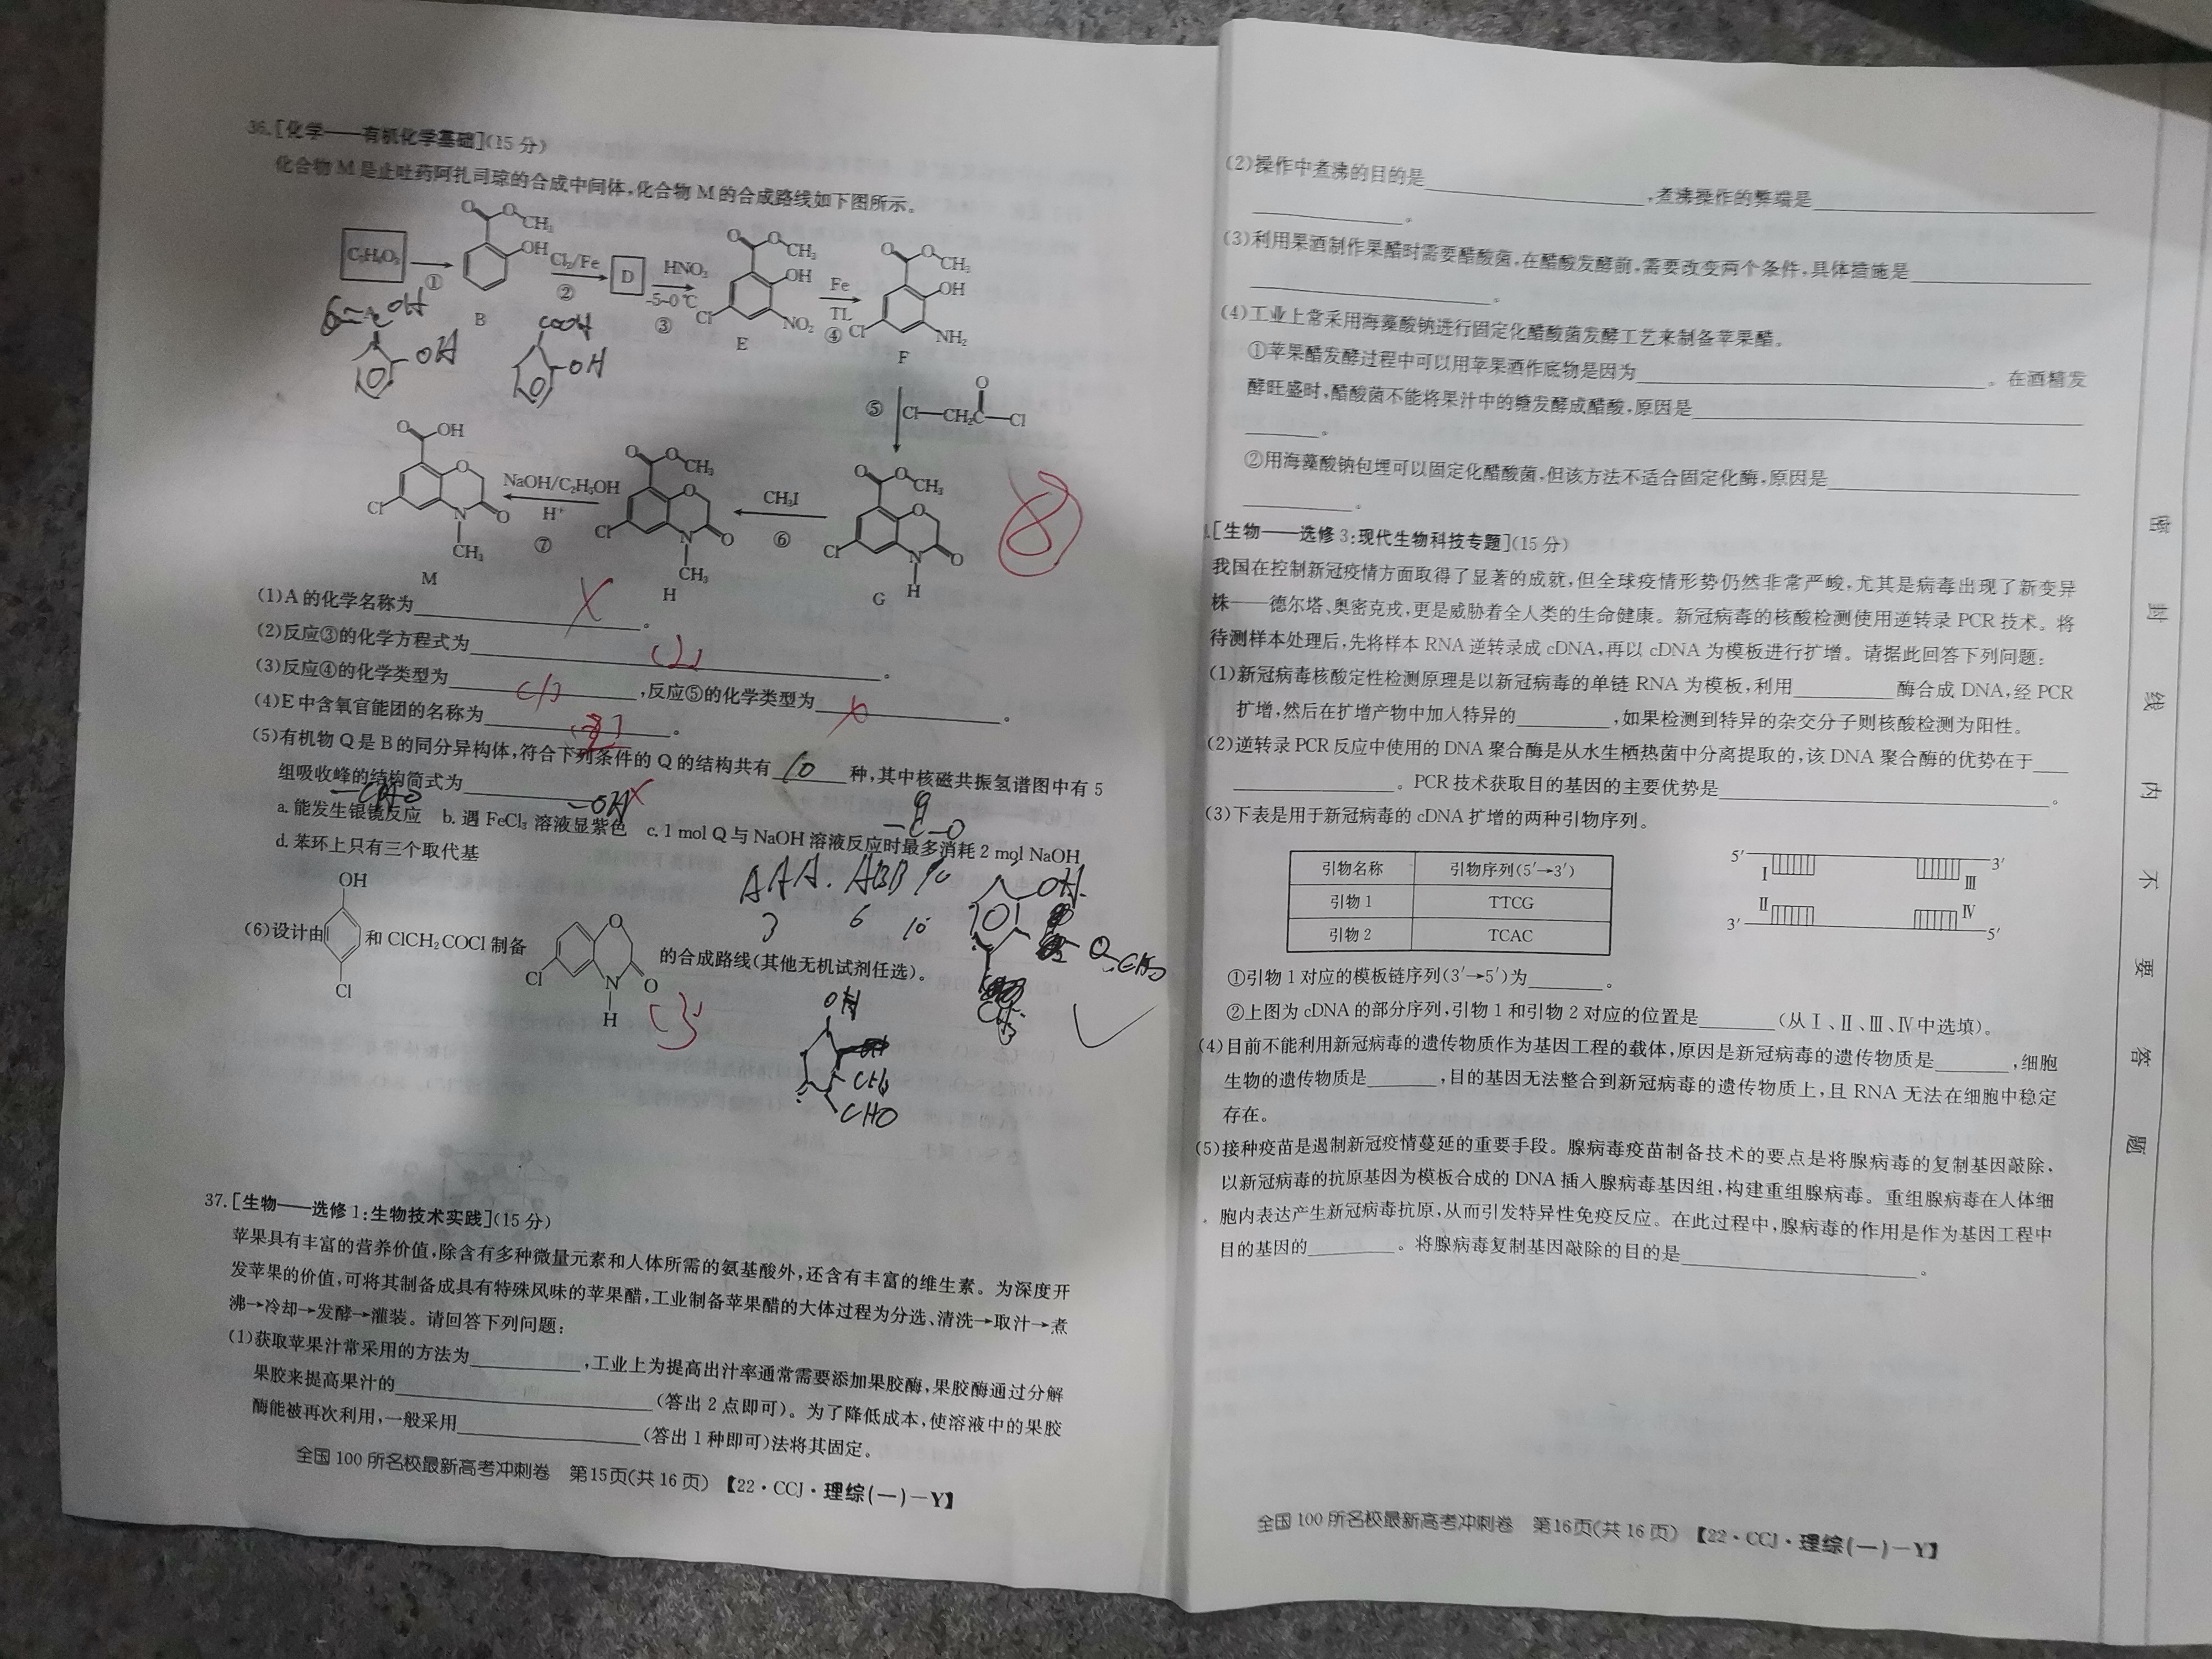 36.[化学——有机化学基础](15分)
化合物M是止吐药阿扎司琼的合成中间体,化合物M的合成路线如下图所示。
C₇H₆O₃
①
O O CH₃
OH
B
Cl₂/Fe
②
D
HNO₃
-5~0℃
③
O O CH₃
OH
Cl NO₂
E
Fe
TL
④
O O CH₃
OH
Cl NH₂
F
OH
OH
COOH
OH
⑤
Cl—CH₂C—Cl
O
O OH
O
Cl N O
CH₃
M
NaOH/C₂H₅OH
H⁺
⑦
O O CH₃
O
Cl N O
CH₃
H
CH₃I
⑥
O O CH₃
O
Cl N O
H
G
8
(1)A的化学名称为________。
(2)反应③的化学方程式为________。
(3)反应④的化学类型为________,反应⑤的化学类型为________。
(4)E中含氧官能团的名称为________。
(5)有机物Q是B的同分异构体,符合下列条件的Q的结构共有 10 种,其中核磁共振氢谱图中有5
组吸收峰的结构简式为________。
-CHO
-OH
a.能发生银镜反应 b.遇FeCl₃溶液显紫色 c.1 mol Q与NaOH溶液反应时最多消耗2 mol NaOH
d.苯环上只有三个取代基
AAA. ABB 10
3 6 10
OH
(6)设计由 OH Cl 和ClCH₂COCl制备 O Cl N O H 的合成路线(其他无机试剂任选)。
OH
CH₃
CHO
37.[生物——选修1:生物技术实践](15分)
苹果具有丰富的营养价值,除含有多种微量元素和人体所需的氨基酸外,还含有丰富的维生素。为深度开
发苹果的价值,可将其制备成具有特殊风味的苹果醋,工业制备苹果醋的大体过程为分选、清洗→取汁→煮
沸→冷却→发酵→灌装。请回答下列问题:
(1)获取苹果汁常采用的方法为________,工业上为提高出汁率通常需要添加果胶酶,果胶酶通过分解
果胶来提高果汁的________(答出2点即可)。为了降低成本,使溶液中的果胶
酶能被再次利用,一般采用________(答出1种即可)法将其固定。
全国100所名校最新高考冲刺卷 第15页(共16页) 【22·CCJ·理综(一)—Y】
(2)操作中煮沸的目的是________,煮沸操作的弊端是________
________。
(3)利用果酒制作果醋时需要醋酸菌,在醋酸发酵前,需要改变两个条件,具体措施是________
________。
(4)工业上常采用海藻酸钠进行固定化醋酸菌发酵工艺来制备苹果醋。
①苹果醋发酵过程中可以用苹果酒作底物是因为________。在酒精发
酵旺盛时,醋酸菌不能将果汁中的糖发酵成醋酸,原因是________
________。
②用海藻酸钠包埋可以固定化醋酸菌,但该方法不适合固定化酶,原因是________
________。
[生物——选修3:现代生物科技专题](15分)
我国在控制新冠疫情方面取得了显著的成就,但全球疫情形势仍然非常严峻,尤其是病毒出现了新变异
株——德尔塔、奥密克戎,更是威胁着全人类的生命健康。新冠病毒的核酸检测使用逆转录PCR技术。将
待测样本处理后,先将样本RNA逆转录成cDNA,再以cDNA为模板进行扩增。请据此回答下列问题:
(1)新冠病毒核酸定性检测原理是以新冠病毒的单链RNA为模板,利用________酶合成DNA,经PCR
扩增,然后在扩增产物中加入特异的________,如果检测到特异的杂交分子则核酸检测为阳性。
(2)逆转录PCR反应中使用的DNA聚合酶是从水生栖热菌中分离提取的,该DNA聚合酶的优势在于____
________。PCR技术获取目的基因的主要优势是________。
(3)下表是用于新冠病毒的cDNA扩增的两种引物序列。
引物名称 引物序列(5′→3′)
引物1 TTCG
引物2 TCAC
5′ 3′
Ⅰ Ⅲ
Ⅱ Ⅳ
3′ 5′
①引物1对应的模板链序列(3′→5′)为________。
②上图为cDNA的部分序列,引物1和引物2对应的位置是________(从Ⅰ、Ⅱ、Ⅲ、Ⅳ中选填)。
(4)目前不能利用新冠病毒的遗传物质作为基因工程的载体,原因是新冠病毒的遗传物质是________,细胞
生物的遗传物质是________,目的基因无法整合到新冠病毒的遗传物质上,且RNA无法在细胞中稳定
存在。
(5)接种疫苗是遏制新冠疫情蔓延的重要手段。腺病毒疫苗制备技术的要点是将腺病毒的复制基因敲除,
以新冠病毒的抗原基因为模板合成的DNA插入腺病毒基因组,构建重组腺病毒。重组腺病毒在人体细
胞内表达产生新冠病毒抗原,从而引发特异性免疫反应。在此过程中,腺病毒的作用是作为基因工程中
目的基因的________。将腺病毒复制基因敲除的目的是________。
全国100所名校最新高考冲刺卷 第16页(共16页) 【22·CCJ·理综(一)—Y】
密 封 线 内 不 要 答 题